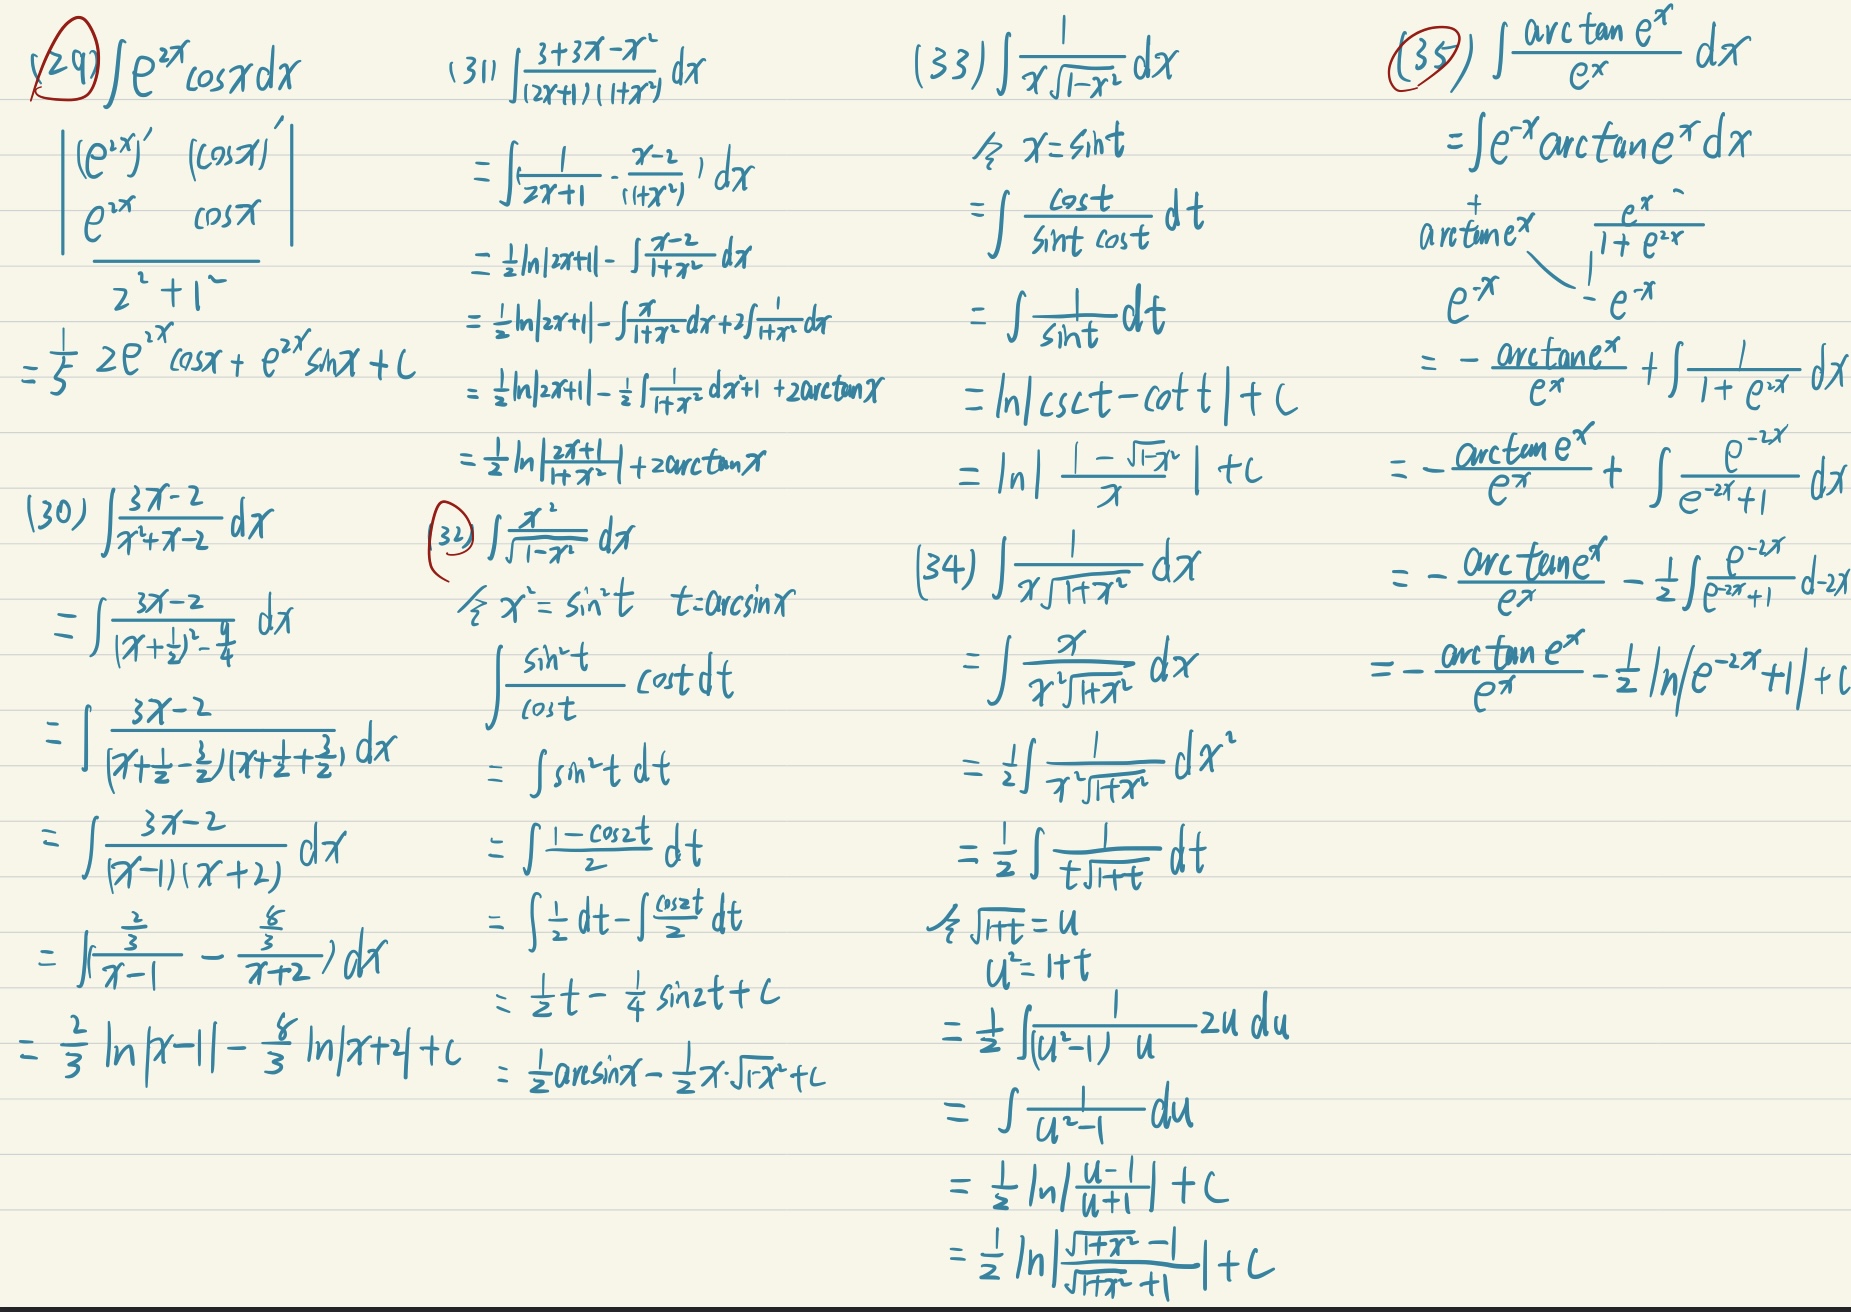 (29) ∫ e^{2x} cosx dx
| (e^{2x})′ (cosx)′ |
| e^{2x} cosx |
2² + 1²
= 1/5 2e^{2x} cosx + e^{2x} sinx + C
(30) ∫ (3x-2)/(x²+x-2) dx
= ∫ (3x-2)/((x+1/2)² - 9/4) dx
= ∫ (3x-2)/((x+1/2-3/2)(x+1/2+3/2)) dx
= ∫ (3x-2)/((x-1)(x+2)) dx
= ∫( (2/3)/(x-1) - (8/3)/(x+2) ) dx
= 2/3 ln|x-1| - 8/3 ln|x+2| + C
(31) ∫ (3+3x-x²)/((2x+1)(1+x²)) dx
= ∫( 1/(2x+1) - (x-2)/((1+x²)) ) dx
= 1/2 ln|2x+1| - ∫ (x-2)/(1+x²) dx
= 1/2 ln|2x+1| - ∫ x/(1+x²) dx + 2∫ 1/(1+x²) dx
= 1/2 ln|2x+1| - 1/2 ∫ 1/(1+x²) dx²+1 + 2arctanx
= 1/2 ln|(2x+1)/(1+x²)| + 2arctanx
(32) ∫ x²/√(1-x²) dx
令 x² = sin²t t=arcsinx
∫ sin²t/cost cost dt
= ∫ sin²t dt
= ∫ (1-cos2t)/2 dt
= ∫ 1/2 dt - ∫ cos2t/2 dt
= 1/2 t - 1/4 sin2t + C
= 1/2 arcsinx - 1/2 x·√(1-x²) + C
(33) ∫ 1/(x√(1-x²)) dx
令 x=sint
= ∫ cost/(sint cost) dt
= ∫ 1/sint dt
= ln|csct - cott| + C
= ln| (1-√(1-x²))/x | + C
(34) ∫ 1/(x√(1+x²)) dx
= ∫ x/(x²√(1+x²)) dx
= 1/2 ∫ 1/(x²√(1+x²)) dx²
= 1/2 ∫ 1/(t√(1+t)) dt
令 √(1+t) = u
u² = 1+t
= 1/2 ∫ 1/((u²-1) u) 2u du
= ∫ 1/(u²-1) du
= 1/2 ln|(u-1)/(u+1)| + C
= 1/2 ln|(√(1+x²) -1)/(√(1+x²) +1)| + C
(35) ∫ arctan e^x/e^x dx
= ∫ e^{-x} arctan e^x dx
+ -
arctan e^x e^x/(1+e^{2x})
e^{-x} - e^{-x}
= - arctan e^x/e^x + ∫ 1/(1+e^{2x}) dx
= - arctan e^x/e^x + ∫ e^{-2x}/(e^{-2x}+1) dx
= - arctan e^x/e^x - 1/2 ∫ e^{-2x}/(e^{-2x}+1) d-2x
= - arctan e^x/e^x - 1/2 ln|e^{-2x}+1| + C